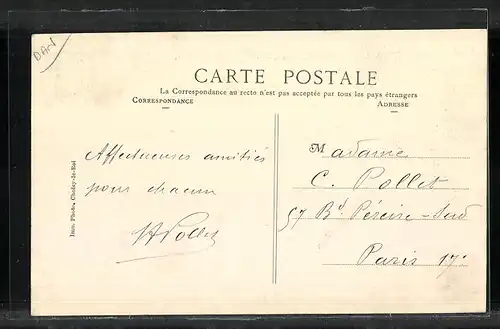 DAN
CARTE POSTALE
La Correspondance au recto n'est pas acceptée par tous les pays étrangers
CORRESPONDANCE
ADRESSE
Affectueuses amitiés
pour chacun
Pollet
Madame
C. Pollet
57 Bd. Péreire-Sud
Paris 17e
Imp. Photo. Choisy-le-Roi